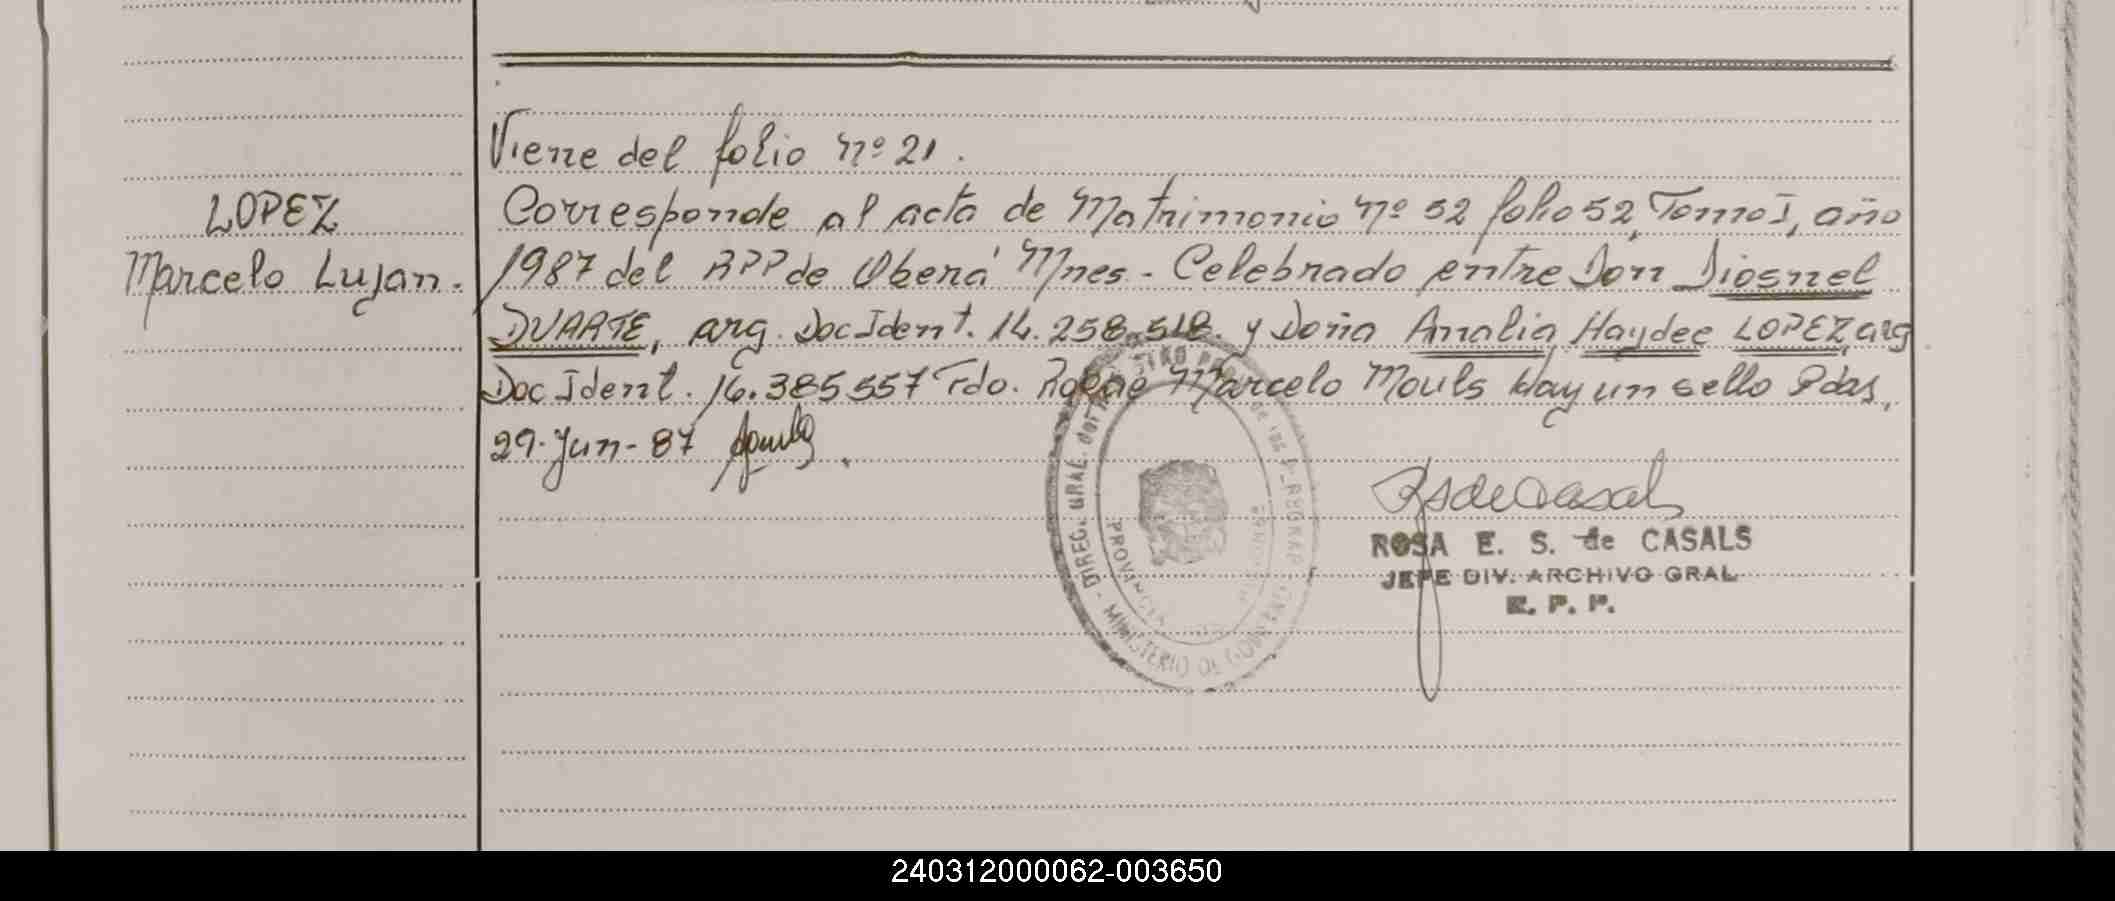 Viene del folio nº 21.
LOPEZ
Marcelo Lujan.
Corresponde al acta de Matrimonio nº 52 folio 52, Tomo I, año
1987 del RPP de Oberá Mnes - Celebrado entre Don Diosnel
DUARTE, arg. Doc Ident. 14.258.518. y Doña Amalia Haydee LOPEZ, arg
Doc Ident. 16.385557 Fdo. Roque Marcelo Mouls Hay un sello Pdas,
29-Jun-87
DIREC. GRAL. DEL
PROVINCIA
MINISTERIO DE GOBIERNO
ROSA E. S. de CASALS
JEFE DIV. ARCHIVO GRAL
R. P. P.
240312000062-003650